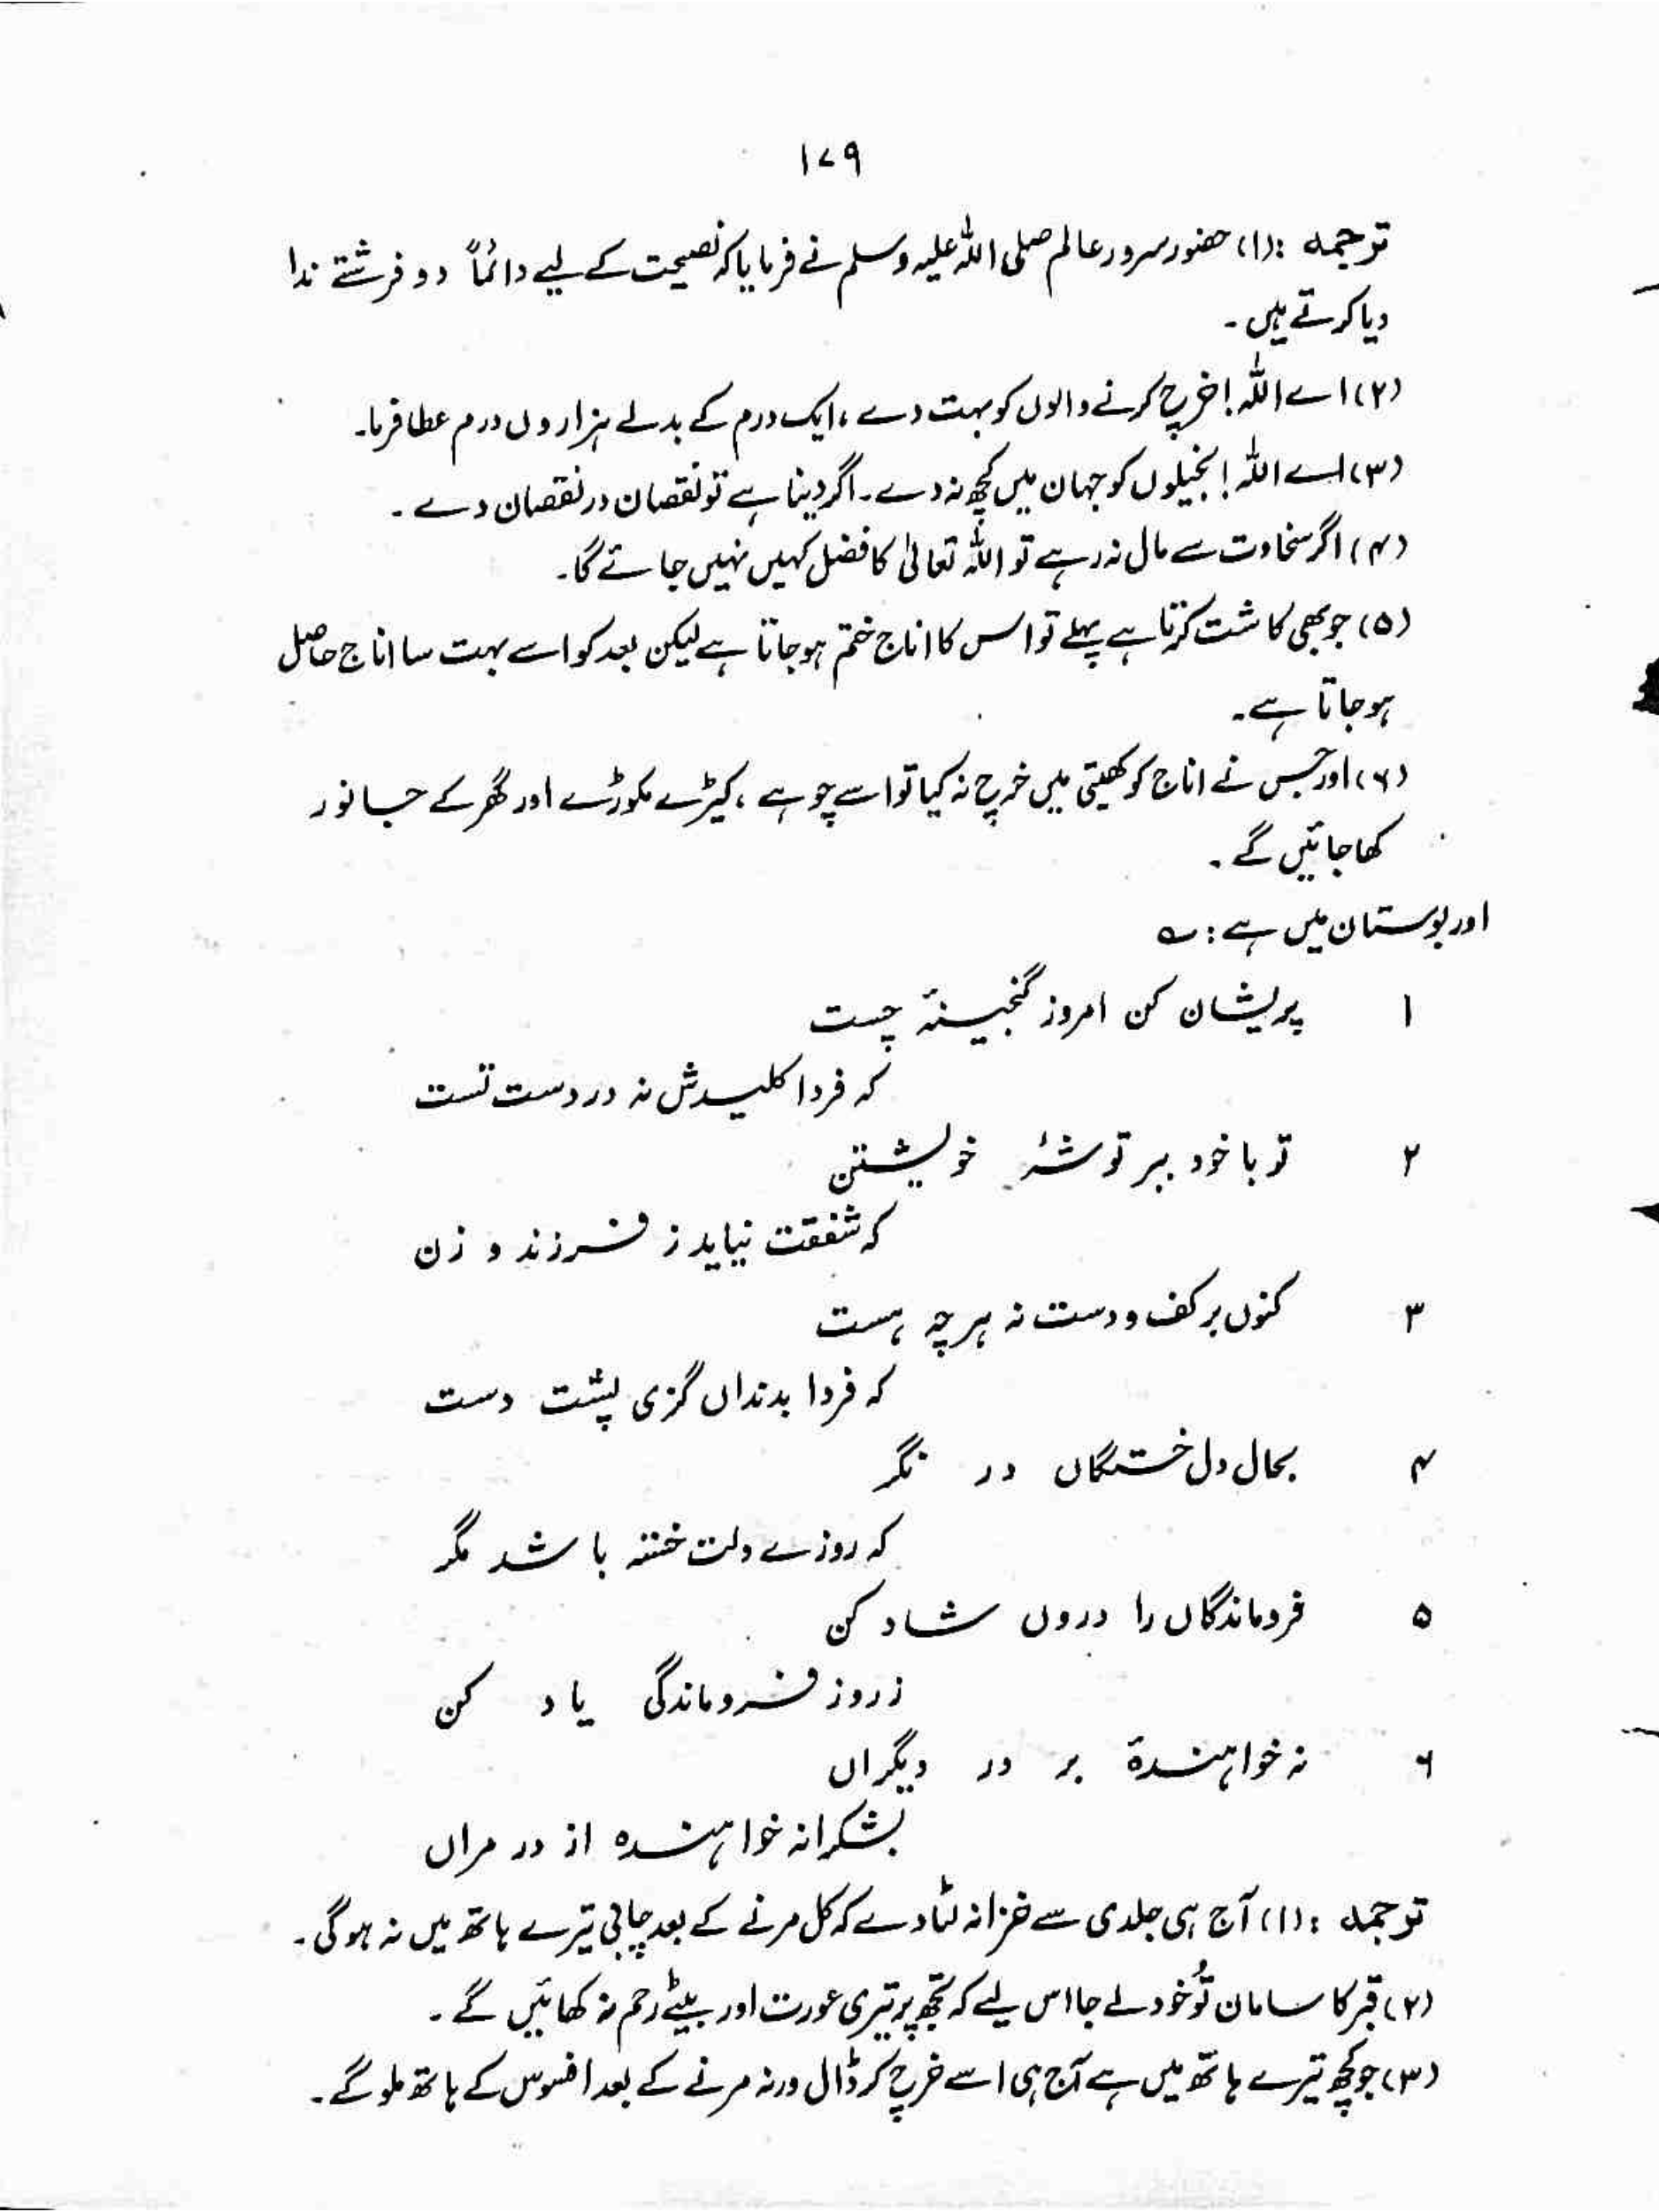 ۱۷۹
ترجمہ :(۱) حضور سرور عالم صلی اللہ علیہ وسلم نے فرمایا کہ نصیحت کے لیے دائماً دو فرشتے ندا
دیا کرتے ہیں ۔
(۲) اے اللہ! خرچ کرنے والوں کو بہت دے ، ایک درم کے بدلے ہزاروں درم عطا فرما۔
(۳) اے اللہ! بخیلوں کو جہان میں کچھ نہ دے ۔ اگر دینا ہے تو نقصان در نقصان دے ۔
(۴) اگر سخاوت سے مال نہ رہے تو اللہ تعالیٰ کا فضل کہیں نہیں جائے گا۔
(۵) جو بھی کاشت کرتا ہے پہلے تو اس کا اناج ختم ہو جاتا ہے لیکن بعد کو اسے بہت سا اناج حاصل
ہو جاتا ہے۔
(۶) اور جس نے اناج کو کھیتی میں خرچ نہ کیا تو اسے چوہے ، کیڑے مکوڑے اور گھر کے جانور
کھا جائیں گے ۔
اور بوستان میں ہے : ؎
۱ پریشان کن امروز گنجینۂ چست
کہ فردا کلیدش نہ در دست تست
۲ تو با خود ببر توشۂ خویشتن
کہ شفقت نیاید ز فرزند و زن
۳ کنوں بر کف و دست نہ ہر چہ ہست
کہ فردا بدنداں گزی پشت دست
۴ بحال دل خستگاں در نگر
کہ روزے دلت خستہ باشد مگر
۵ فروماندگاں را دروں شاد کن
ز روز فروماندگی یاد کن
۶ نہ خواہندۂ بر در دیگراں
بشکرانہ خواہندہ از در مراں
ترجمہ : (۱) آج ہی جلدی سے خزانہ لٹا دے کہ کل مرنے کے بعد چابی تیرے ہاتھ میں نہ ہوگی ۔
(۲) قبر کا سامان تُو خود لے جا اس لیے کہ تجھ پر تیری عورت اور بیٹے رحم نہ کھائیں گے ۔
(۳) جو کچھ تیرے ہاتھ میں ہے آج ہی اسے خرچ کر ڈال ورنہ مرنے کے بعد افسوس کے ہاتھ ملو گے ۔